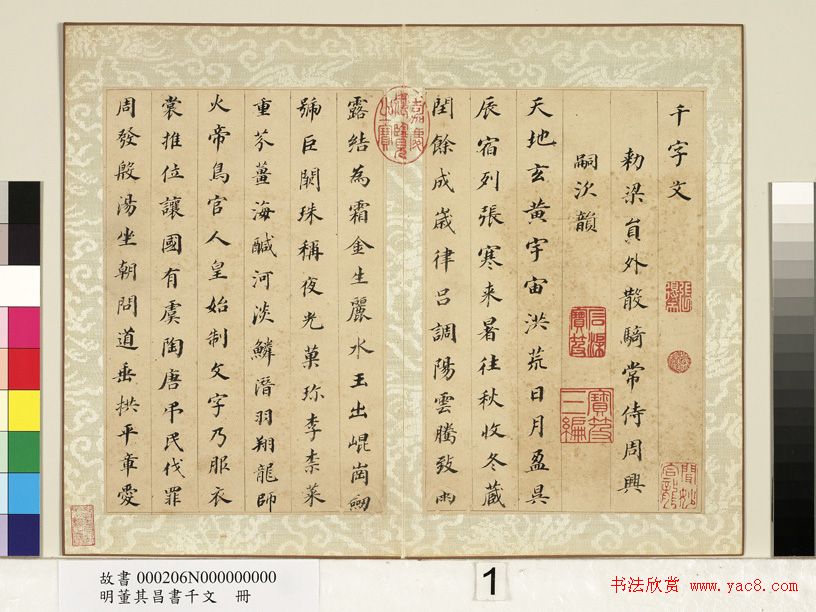 千字文
勑梁貟外散騎常侍周興
嗣次韻
天地玄黃宇宙洪荒日月盈昃
辰宿列張寒来暑往秋收冬蔵
閏餘成歲律呂調陽雲騰致雨
露結為霜金生麗水玉出崐崗劒
號巨闕珠稱夜光菓珎李柰菜
重芥薑海鹹河淡鱗潛羽翔龍師
火帝鳥官人皇始制文字乃服衣
裳推位讓國有虞陶唐弔民伐罪
周發殷湯坐朝問道垂拱平章愛
石渠寶笈
寶笈三編
嘉慶御覽之寶
故書 000206N000000000
明董其昌書千文 冊
1
书法欣赏 www.yac8.com